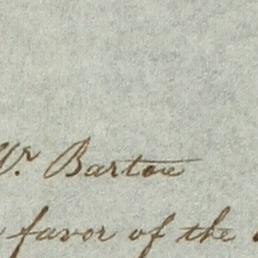 Wr. Barton
favor of the